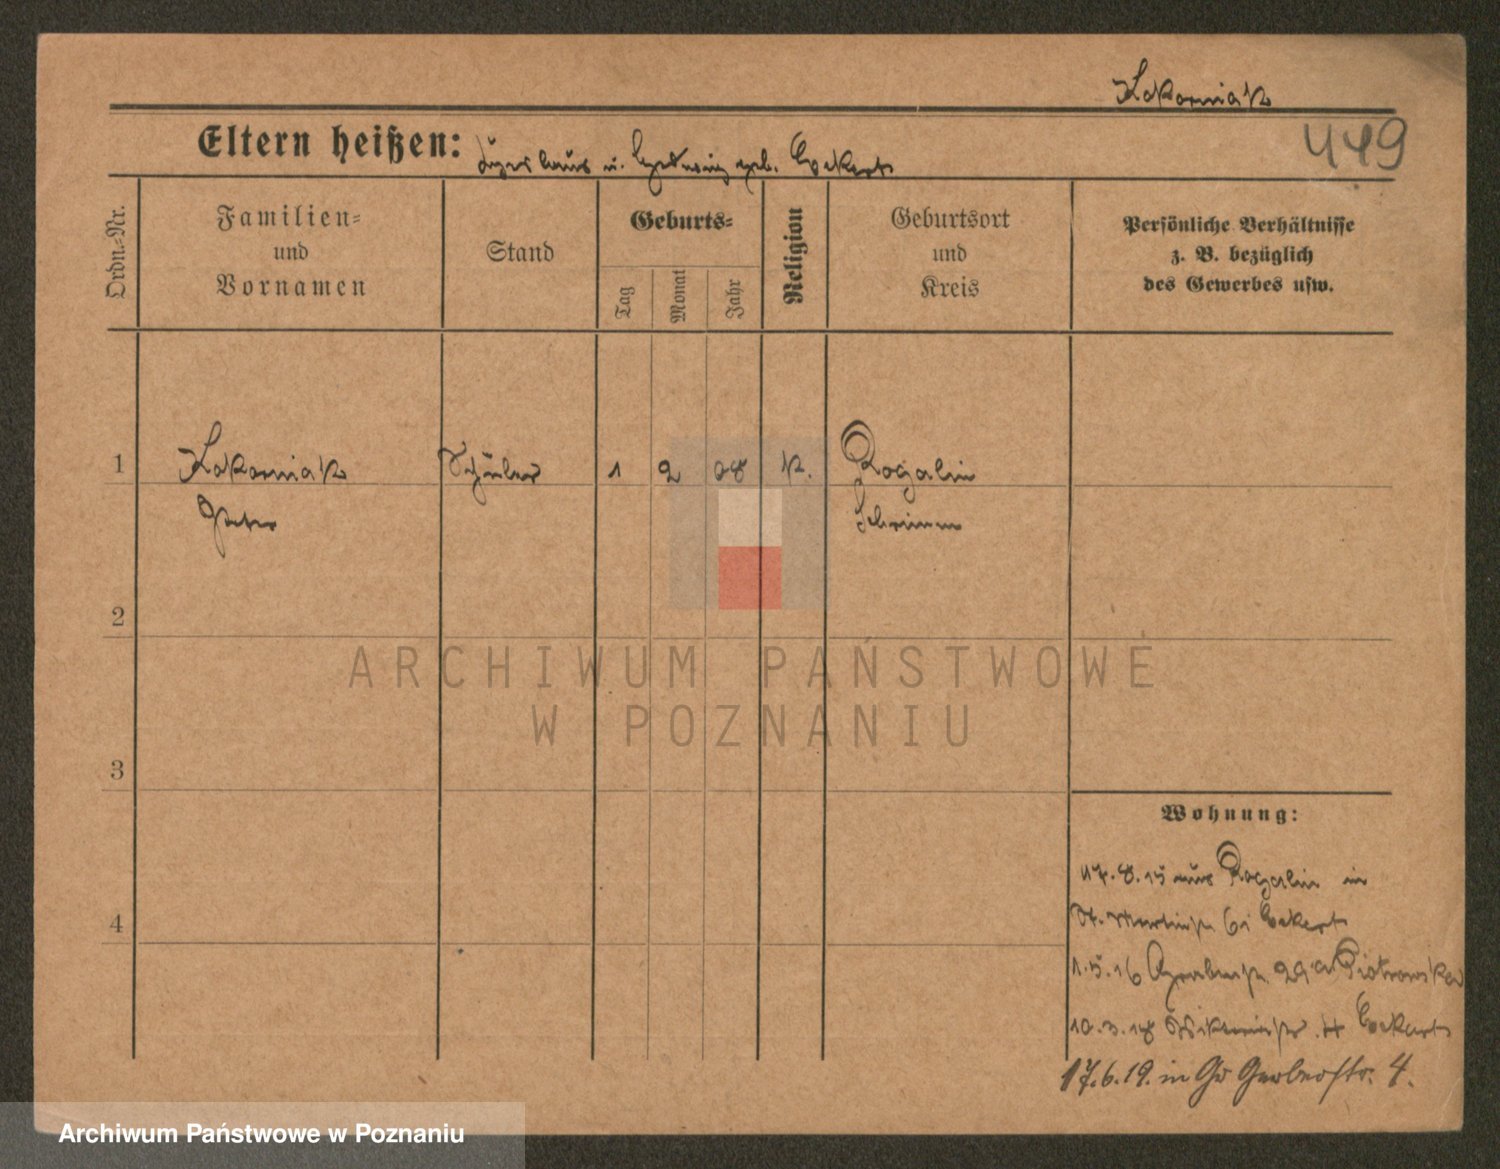 Kokorniak
449
Eltern heißen: u. Hedwig geb. Eckert
Ordn.-Nr.
Familien-
und
Vornamen
Stand
Geburts-
Tag
Monat
Jahr
Religion
Geburtsort
und
Kreis
Persönliche Verhältnisse
z. B. bezüglich
des Gewerbes usw.
1
Kokorniak Schüler 1 2 08 K. Rogalin
Peter Schrimm
2
3
4
Wohnung:
17.8.15 aus Rogalin in
St. Martinstr 6 Eckert
1.5.16 Grabenstr. 29a Piotrowska
10.3.18 4 Eckert
17.6.19. in Gr Gerberstr. 4.
ARCHIWUM PAŃSTWOWE
W POZNANIU
Archiwum Państwowe w Poznaniu